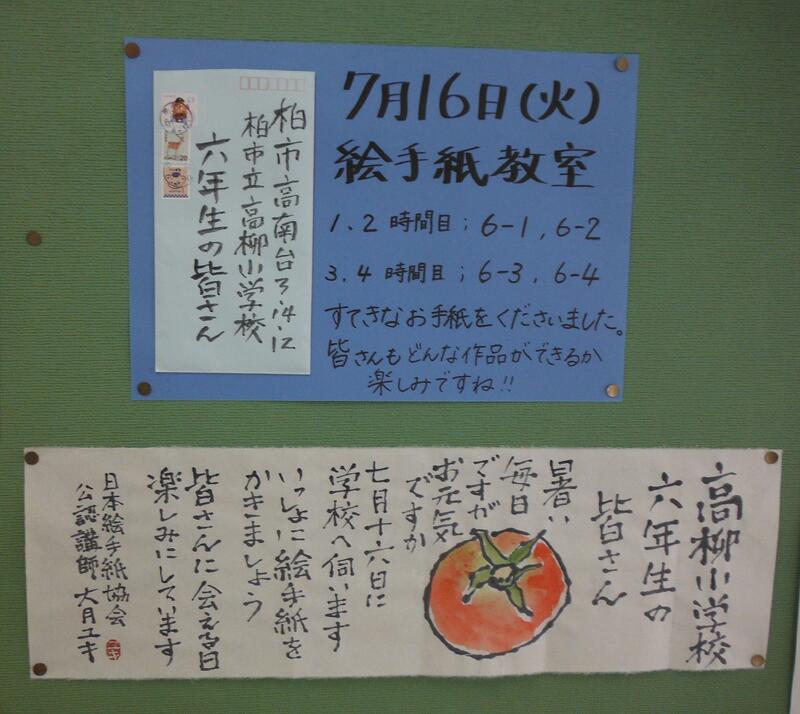 7月16日(火)
絵手紙教室
1.2 時間目; 6-1, 6-2
3.4 時間目; 6-3, 6-4
すてきなお手紙をくださいました。
皆さんもどんな作品ができるか
楽しみですね!!
柏市高南台3-14-12
柏市立高柳小学校
六年生の皆さん
20
高柳小学校
六年生の
皆さん
暑い
毎日
ですが
お元気
ですか
七月十六日に
学校へ伺います
いっしょに絵手紙を
かきましょう
皆さんに会える日
楽しみにしています
日本絵手紙協会
公認講師 大月ユキ